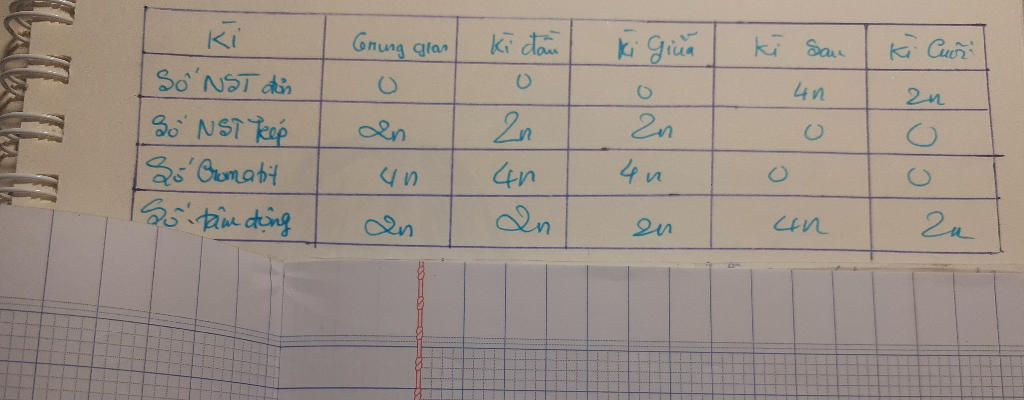 Kì Trung gian Kì đầu Kì Giữa Kì Sau Kì Cuối
Số NST đơn 0 0 0 4n 2n
Số NST kép 2n 2n 2n 0 0
Số Cromatit 4n 4n 4n 0 0
Số tâm động 2n 2n 2n 4n 2n